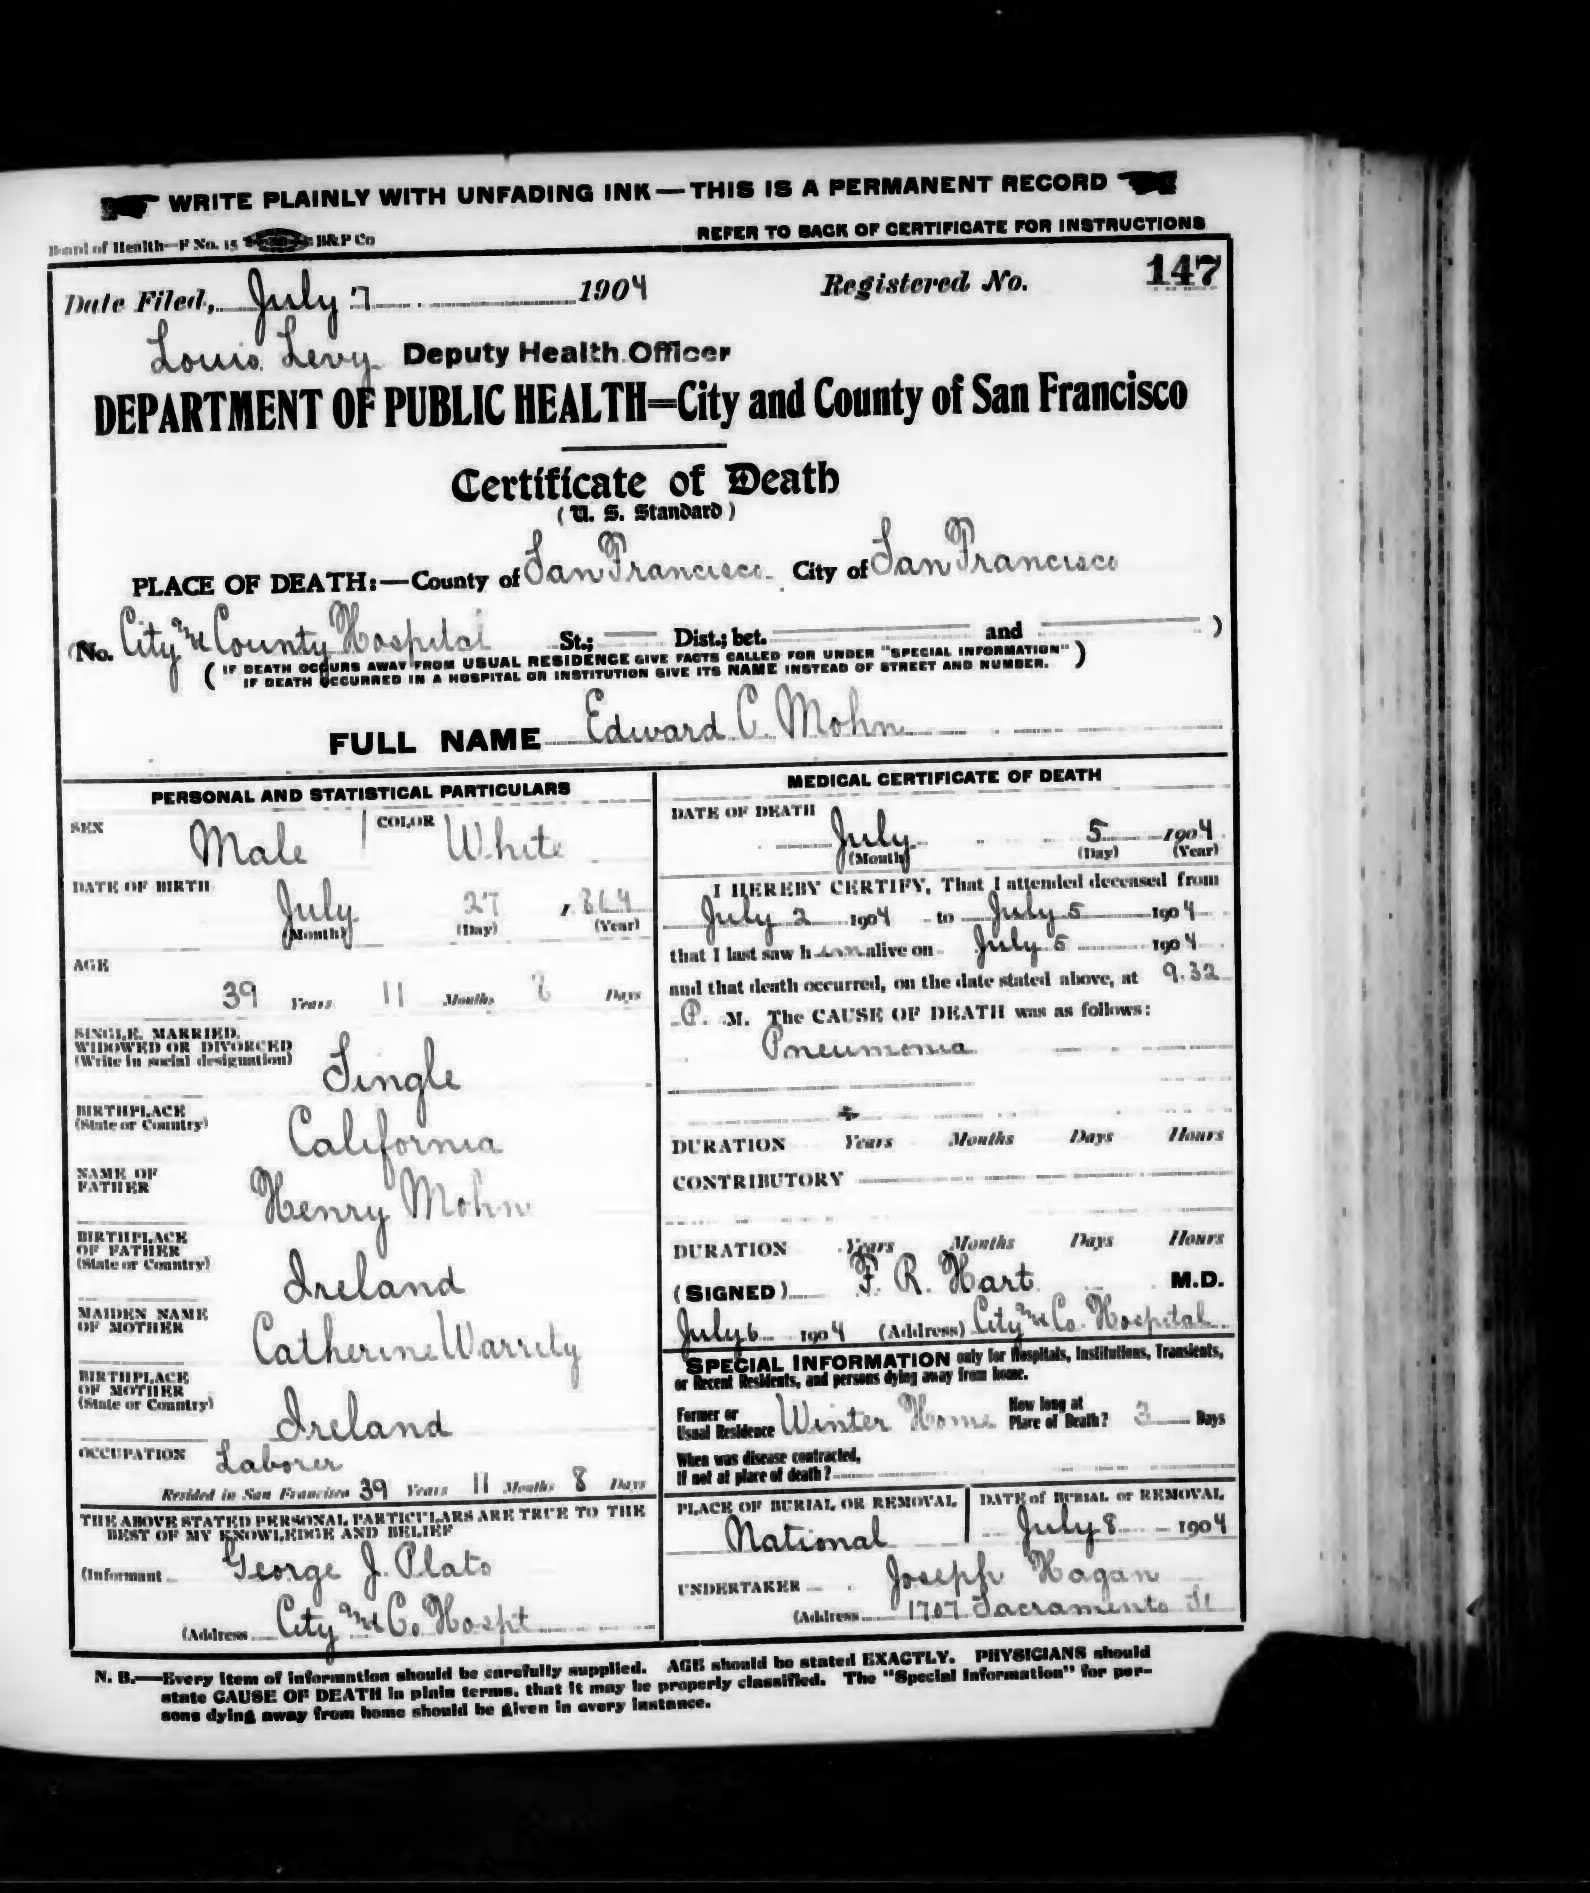 WRITE PLAINLY WITH UNFADING INK—THIS IS A PERMANENT RECORD
Board of Health—F No. 15 B&P Co
REFER TO BACK OF CERTIFICATE FOR INSTRUCTIONS
Date Filed, July 7 1904 Registered No. 147
Louis Levy Deputy Health Officer
DEPARTMENT OF PUBLIC HEALTH=City and County of San Francisco
Certificate of Death
(U. S. Standard)
PLACE OF DEATH:—County of San Francisco City of San Francisco
(No. City and County Hospital St.; Dist.; bet. and )
( IF DEATH OCCURS AWAY FROM USUAL RESIDENCE GIVE FACTS CALLED FOR UNDER "SPECIAL INFORMATION" )
IF DEATH OCCURRED IN A HOSPITAL OR INSTITUTION GIVE ITS NAME INSTEAD OF STREET AND NUMBER.
FULL NAME Edward C. Mohn
PERSONAL AND STATISTICAL PARTICULARS
SEX Male COLOR White
DATE OF BIRTH July 27, 1864
(Month) (Day) (Year)
AGE
39 Years 11 Months 8 Days
SINGLE, MARRIED,
WIDOWED OR DIVORCED
(Write in social designation) Single
BIRTHPLACE
(State or Country) California
NAME OF
FATHER Henry Mohn
BIRTHPLACE
OF FATHER
(State or Country) Ireland
MAIDEN NAME
OF MOTHER Catherine Warrity
BIRTHPLACE
OF MOTHER
(State or Country) Ireland
OCCUPATION Laborer
Resided in San Francisco 39 Years 11 Months 8 Days
THE ABOVE STATED PERSONAL PARTICULARS ARE TRUE TO THE
BEST OF MY KNOWLEDGE AND BELIEF
(Informant George J. Plato
(Address City and Co. Hospt
MEDICAL CERTIFICATE OF DEATH
DATE OF DEATH
July 5 1904
(Month) (Day) (Year)
I HEREBY CERTIFY, That I attended deceased from
July 2 1904 to July 5 1904
that I last saw him alive on July 5 1904
and that death occurred, on the date stated above, at 9.32
P. M. The CAUSE OF DEATH was as follows:
Pneumonia
DURATION Years Months Days Hours
CONTRIBUTORY
DURATION Years Months Days Hours
(SIGNED) F. R. Hart M.D.
July 6 1904 (Address) City and Co. Hospital
SPECIAL INFORMATION only for Hospitals, Institutions, Transients,
or Recent Residents, and persons dying away from home.
Former or
Usual Residence Winter Home
How long at
Place of Death? 3 Days
When was disease contracted,
If not at place of death?
PLACE OF BURIAL OR REMOVAL DATE of BURIAL or REMOVAL
National July 8 1904
UNDERTAKER Joseph Hagan
(Address 1707 Sacramento St
N. B.—Every item of information should be carefully supplied. AGE should be stated EXACTLY. PHYSICIANS should
state CAUSE OF DEATH in plain terms, that it may be properly classified. The "Special Information" for per-
sons dying away from home should be given in every instance.